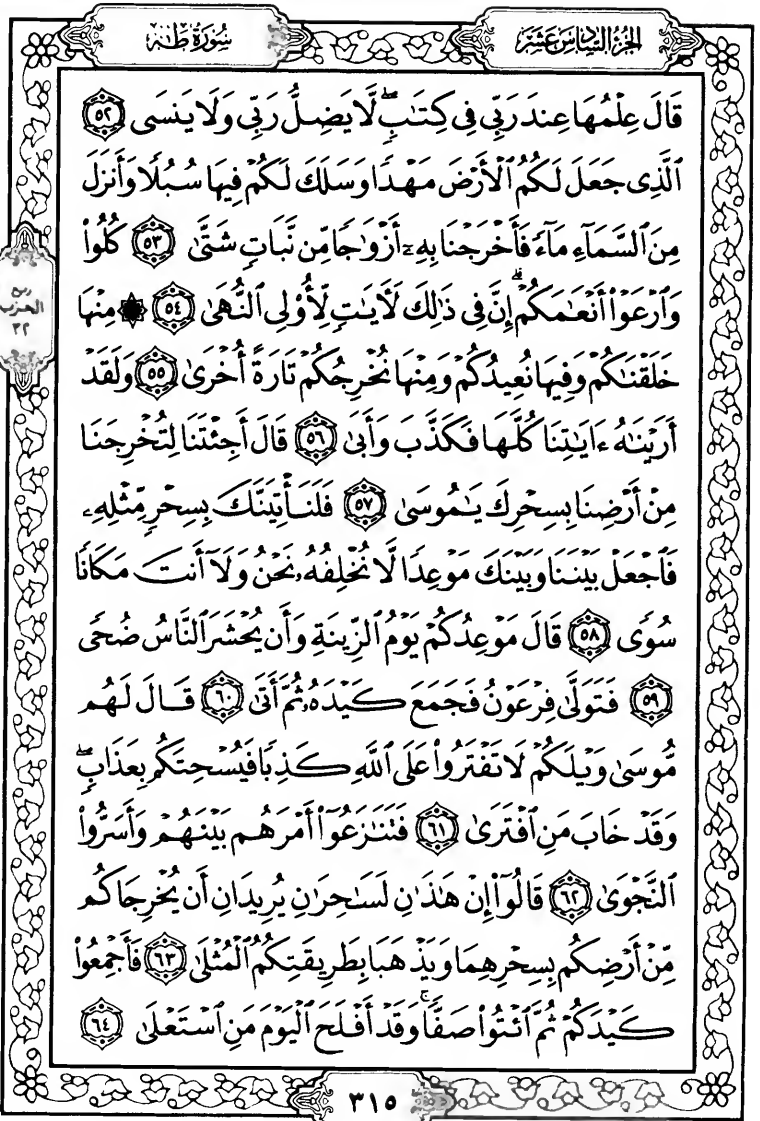 الجزء السادس عشر
سورة طه
قَالَ عِلْمُهَا عِندَ رَبِّى فِى كِتَـٰبٍۖ لَّا يَضِلُّ رَبِّى وَلَا يَنسَى ٥٢
ٱلَّذِى جَعَلَ لَكُمُ ٱلْأَرْضَ مَهْدًا وَسَلَكَ لَكُمْ فِيهَا سُبُلًا وَأَنزَلَ
مِنَ ٱلسَّمَآءِ مَآءً فَأَخْرَجْنَا بِهِۦٓ أَزْوَٰجًا مِّن نَّبَاتٍ شَتَّىٰ ٥٣ كُلُوا۟
وَٱرْعَوْا۟ أَنْعَـٰمَكُمْۗ إِنَّ فِى ذَٰلِكَ لَـَٔايَـٰتٍ لِّأُو۟لِى ٱلنُّهَىٰ ٥٤ ۞ مِنْهَا
خَلَقْنَـٰكُمْ وَفِيهَا نُعِيدُكُمْ وَمِنْهَا نُخْرِجُكُمْ تَارَةً أُخْرَىٰ ٥٥ وَلَقَدْ
أَرَيْنَـٰهُ ءَايَـٰتِنَا كُلَّهَا فَكَذَّبَ وَأَبَىٰ ٥٦ قَالَ أَجِئْتَنَا لِتُخْرِجَنَا
مِنْ أَرْضِنَا بِسِحْرِكَ يَـٰمُوسَىٰ ٥٧ فَلَنَأْتِيَنَّكَ بِسِحْرٍ مِّثْلِهِۦ
فَٱجْعَلْ بَيْنَنَا وَبَيْنَكَ مَوْعِدًا لَّا نُخْلِفُهُۥ نَحْنُ وَلَآ أَنتَ مَكَانًا
سُوًى ٥٨ قَالَ مَوْعِدُكُمْ يَوْمُ ٱلزِّينَةِ وَأَن يُحْشَرَ ٱلنَّاسُ ضُحًى
٥٩ فَتَوَلَّىٰ فِرْعَوْنُ فَجَمَعَ كَيْدَهُۥ ثُمَّ أَتَىٰ ٦٠ قَالَ لَهُم
مُّوسَىٰ وَيْلَكُمْ لَا تَفْتَرُوا۟ عَلَى ٱللَّهِ كَذِبًا فَيُسْحِتَكُم بِعَذَابٍۖ
وَقَدْ خَابَ مَنِ ٱفْتَرَىٰ ٦١ فَتَنَـٰزَعُوٓا۟ أَمْرَهُم بَيْنَهُمْ وَأَسَرُّوا۟
ٱلنَّجْوَىٰ ٦٢ قَالُوٓا۟ إِنْ هَـٰذَٰنِ لَسَـٰحِرَٰنِ يُرِيدَانِ أَن يُخْرِجَاكُم
مِّنْ أَرْضِكُم بِسِحْرِهِمَا وَيَذْهَبَا بِطَرِيقَتِكُمُ ٱلْمُثْلَىٰ ٦٣ فَأَجْمِعُوا۟
كَيْدَكُمْ ثُمَّ ٱئْتُوا۟ صَفًّاۚ وَقَدْ أَفْلَحَ ٱلْيَوْمَ مَنِ ٱسْتَعْلَىٰ ٦٤
ربع
الحزب
٣٢
٣١٥